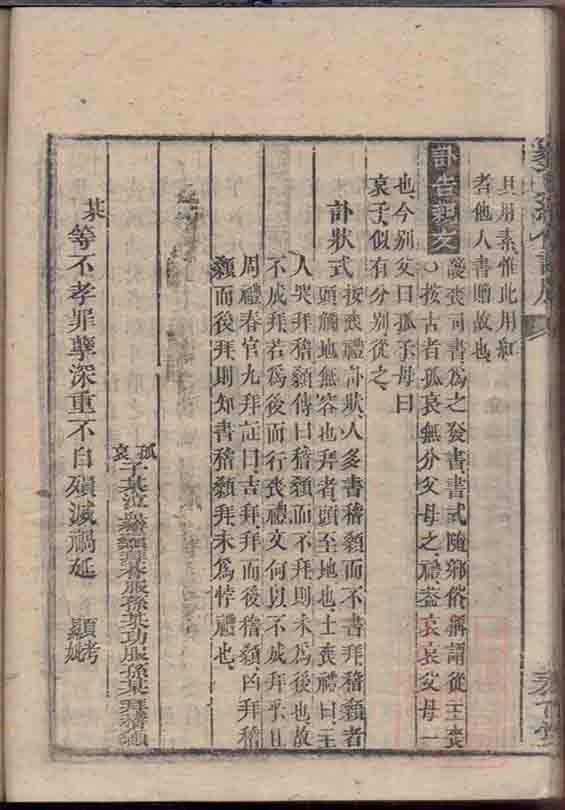 且用素惟此用紅
者他人書贈故也
訃告類文
護喪司書爲之發書書式隨鄉俗稱謂從主喪
○按古者孤哀無分父母之禮蓋哀哀父母一
也今別父曰孤子母曰
哀子似有分別從之
訃狀式按喪禮訃狀人多書稽顙而不書拜稽顙者
頭觸地無容也拜者頭至地也士喪禮曰主
人哭拜稽顙傳曰稽顙而不拜則未爲後也故
不成拜若爲後而行喪禮文何以不成拜乎且
周禮春官九拜証曰吉拜拜而後稽顙凶拜稽
顙而後拜則知書稽顙拜未爲悖禮也
孤哀子某泣
服孫某功服孫某拜稽顙
某等不孝罪孽深重不自殞滅禍延 顯考顯妣